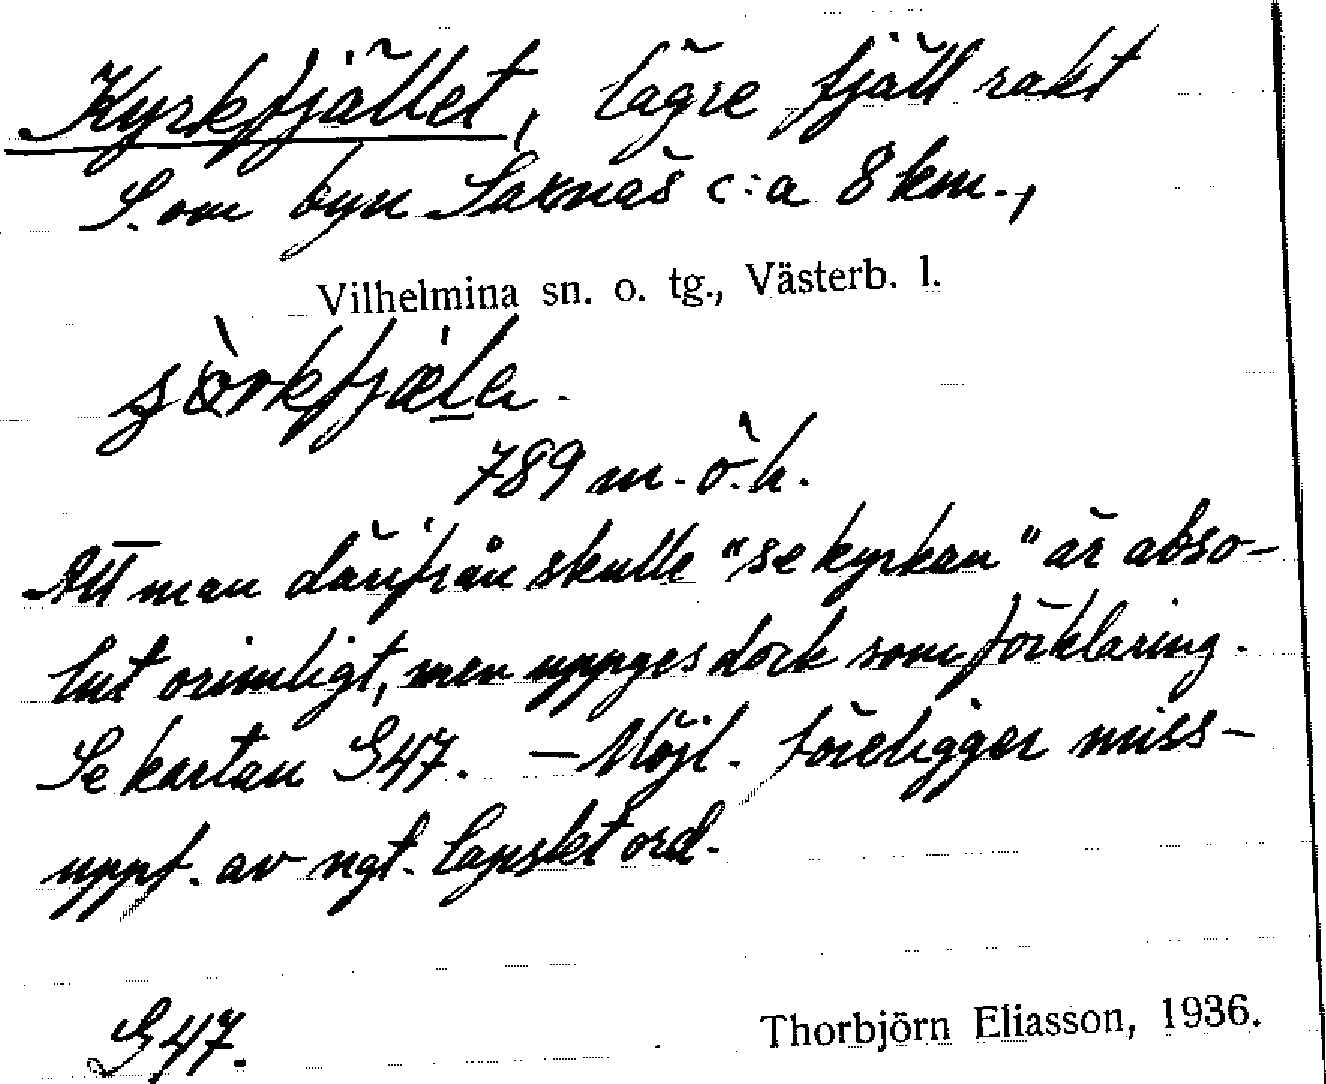 Kyrkfjället, lägre fjäll rakt
S. om byn Saxnäs c:a 8 km.,
Vilhelmina sn. o. tg., Västerb. l.
789 m. ö. h.
Att man därifrån skulle "se kyrkan" är abso-
lut orimligt, men uppges dock som förklaring.
Se kartan S47. — Möjl. föreligger miss-
uppf. av ngt. lapskt ord.
S47.
Thorbjörn Eliasson, 1936.